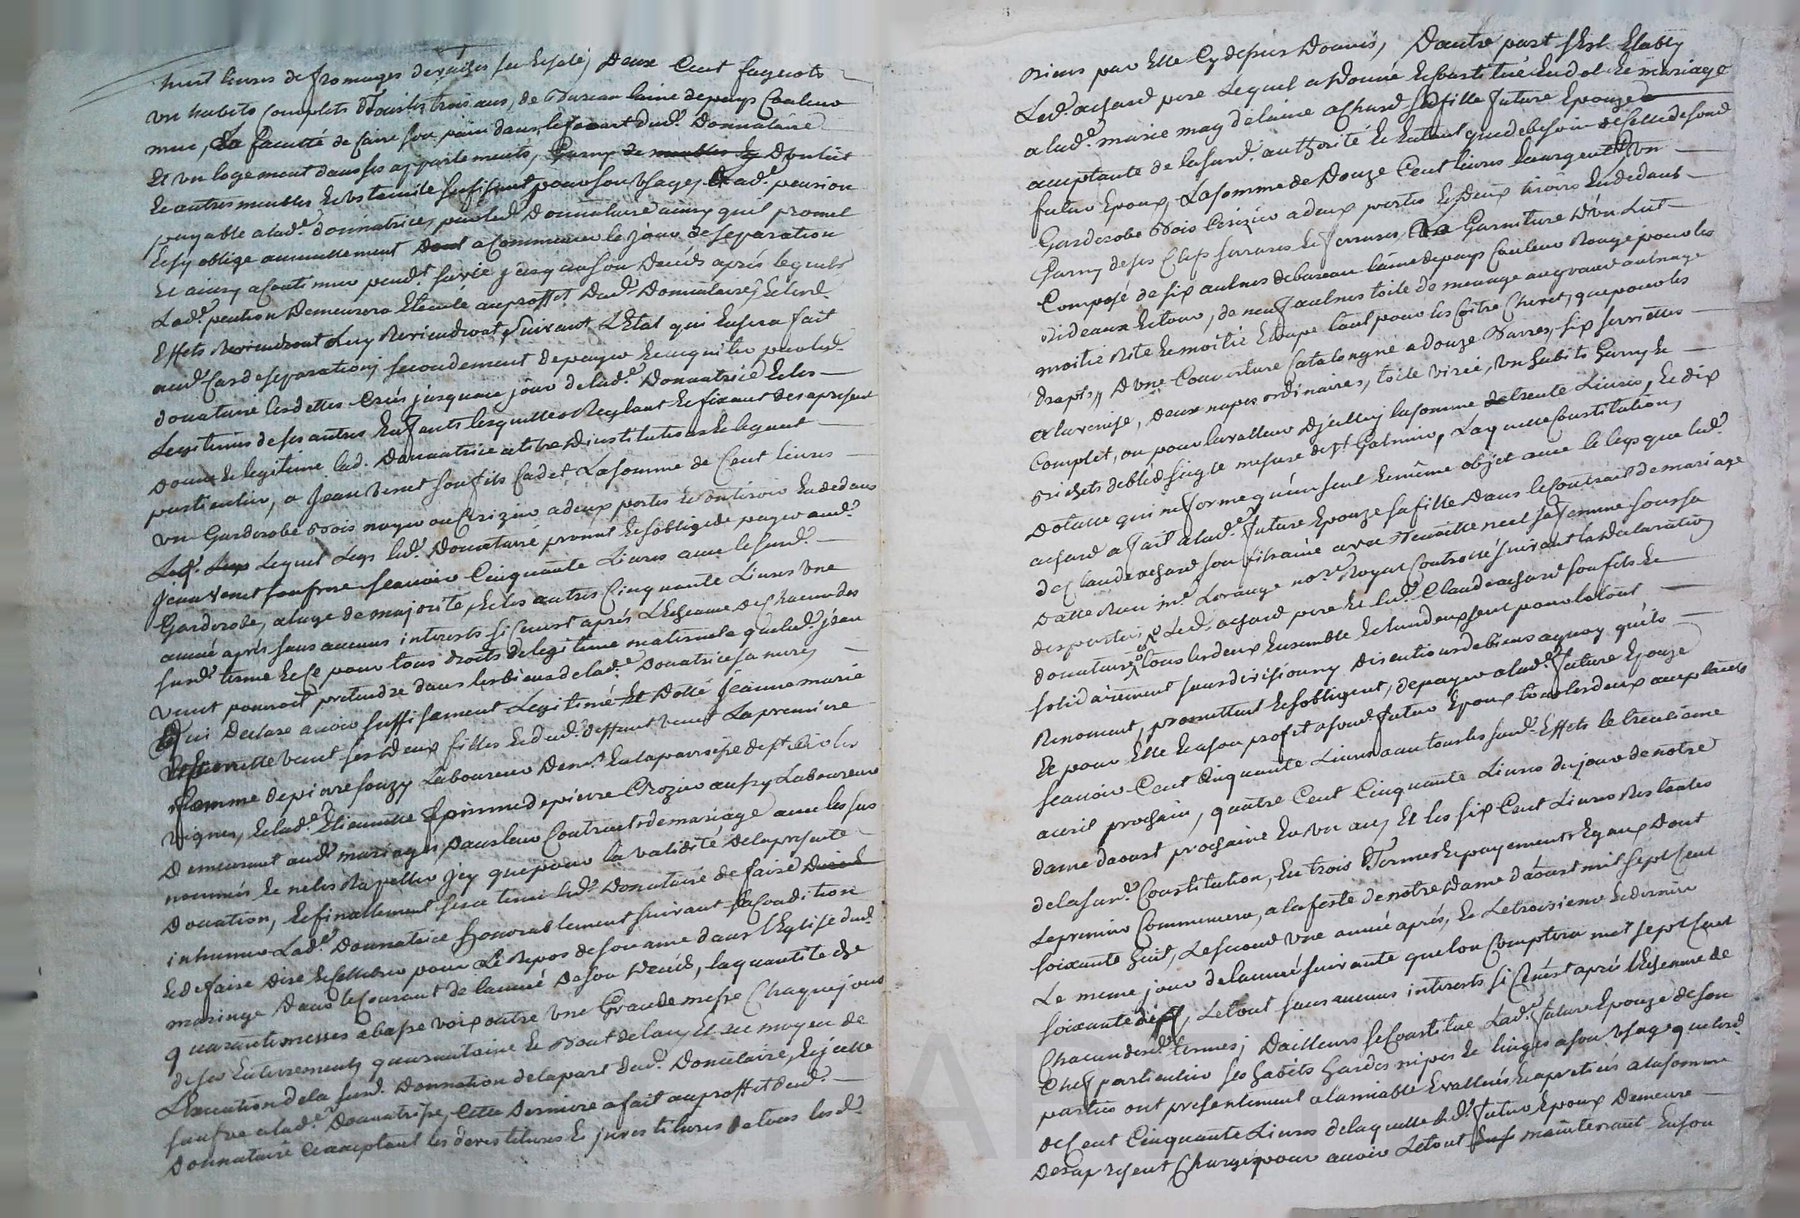 huit livres de fromages de vaches sec et salé, Deux Cent fagots
un habits complets Touts les trois ans, de Bureau laine de pays Couleur
mur, La faculté de faire son pain dans le fourt dud. Donnataire
Et un logement dans ses appartements, Garny de meubles D'un lict
Et autres meubles Et Ustancile suffisant pour son Usage, lad.e pension
payable a lad.e donnatrice, par led. Donnataire ainsy quil promet
Et sy oblige annuellement a Commancer le jour de separation
Et ainsy a Continuer pend.t sa vie jusqu'a son Deces apres lequel
Lad.e pention Demeurera Eteinte au proffit dud. Donnataire, Et les d.
Effets luy Reviendront suivant L'Etat qui En sera fait
aud. Cas de separation, secondement de payer Et acquitter par led.
donataire les dettes Créés jusqua ce jour de lad.e Donnatrice Et les
Legitimes de ses autres Enfants lesquelles Reglant Et fixant des apresent
Donne Et legitime lad. Donnatrice a titre D'institution Et legat
particulier, a Jean Venet son fils Cadet, La somme de Cent livres
un Garderobe Bois noyer ou Cerizier a deux portes Et un tiroir En dedans
Lequel Legs led. Donnataire promet Et s'oblige de payer aud.
Jean Venet son frere sçavoir Cinquante Livres avec le susd.
Garderobe, a l'age de majorité, Et les autres Cinquante Livres une
année apres sans aucuns interests si Ce n'est après L'Echeance de Chacun des
susd. terme Et Ce pour tous droits de legitime maternels que led. Jean
Venet pourroit pretendre dans les biens de lad.e Donatrice sa mere,
Qui Declare avoir suffisament Legitimé Et Dotté Jeanne marie
Et Etiennette Venet ses deux filles Et dud. deffunt Venet La premiere
femme de pierre souzy Laboureur Dem.t En la paroisse de st
vignes, Et lad.e Etiennette Epouse de pierre Crozier aussy Laboureur
Demeurant aud. mariages, Dans leur Contracts de mariage avec les sus
nommés Et ne les Rapeller Jcy que pour la validité de la presente
Donation, Et finallement sera tenu led. Donataire de faire
inhumer Lad.e Donnatrice honorablement suivant sa Condition
Et de faire Dire Et Celebrer pour Le Repos de son ame dans l'Eglise dud.
mariage Dans le Courant de l'année De son Deces, la quantité de
quarante messes a basse voix outre une Grande messe Chaque jours
de ses Enterrement, quarantaine Et Bout de lan, Et au moyen de
L'Execution de la susd. Donnation de la part dud. Donnataire, Et jcelle
sauve a lad.e Donnatrice, Cette Derniere a fait au proffit dud.
Donnataire acceptant les devestitures Et jnvestitures De tous les d.
Biens par Elle Cy dessus Donnés, D'autre part s'est Etably
Led. achard pere Lequel a Donné Et Constitué En dot Et mariage
a lad.e marie magdelaine achard sa fille future Epouze
acceptante de la susd. authorité Et En tant que de besoin de Celle de son d.
futur Epoux, La somme de Douze Cent livres En argent, Un
Garderobe Bois Cerizier a deux portes Et Deux tiroirs En dedans
Garny de ses Clefs serrures Et ferrures, La Garniture D'un Lict
Composé de six aulnes de bureau laine de pays Couleur Rouge pour les
Rideaux Et tour, de neuf aulnes toile de menage au grand aulnage
moitié Rite Et moitié Etoupe tant pour les Coitre Chevet, que pour les
draps, D'une Couverture Catalongne a douze Barres, six serviettes
a la venise, Deux napes ordinaires, toile virée, Un habits Garny Et
Complet, ou pour la valleur D'jcelluy la somme de trente Livres, Et dix
Bichets de bled seigle mesure de st Galmier, Laquelle Constitution
Dotalle qui ne forme qu'un seul Et même objet avec le legs que led.
achard a fait a lad.e future Epouze sa fille Dans le Contract de mariage
de Claude achard son fils ainé avec neel sa femme sous sa
Datte Reçu m.e Lorange no.re Royal Controllé suivant la Declaration
des parties, Led. achard pere Et led. Claude achard son fils Et
donataire tous les deux Ensemble Et l'un d'eux seul pour le tout
solidairement sans division ny Discutions de biens a quoy qu'ils
Renoncent, promettent Et s'obligent, de payer a lad.e future Epouze
Et pour Elle Et a son profit a son d. futur Epoux tous les deux acceptants
sçavoir Cent Cinquante Livres avec tous les susd. Effets le treuzieme
avril prochain, quatre Cent Cinquante Livres du jour de notre
dame daoust prochaine En un an, Et les six Cent Livres Restantes
de la sus d. Constitution, En trois Termes Et payements Egaux Dont
Le premier Commencera, a la feste de notre Dame d'aoust mil sept Cent
soixante huit, Le second une année après, Et Le troisieme Et dernier
Le meme jour de l'année suivante que lon Comptera mil sept Cent
soixante dix, Le tout sans aucuns interests si Ce n'est après l'Echeance de
Chacun desd. termes; D'ailleurs se Constitue Lad.e future Epouze de son
Chef particulier ses habits hardes nipes Et linges a son Usage que les d.
parties ont presentement a l'amiable Evallués Et apretiés a la somme
de Cent Cinquante Livres de laquelle led. futur Epoux Demeure
Des apresent Chargé pour avoir Le tout maintenant En son